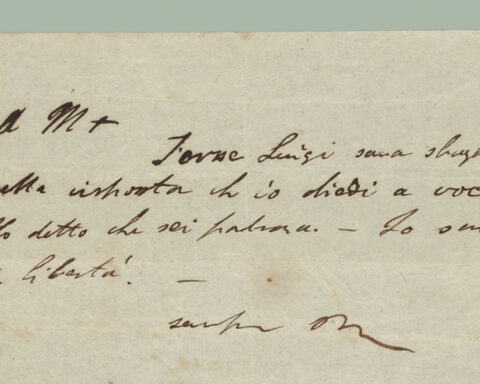 a M+
Forse Luigi sara sbag
alla risposta ch io diedi a voc
Ho detto che sei padrona. – Io sar
libertà. –
sempre